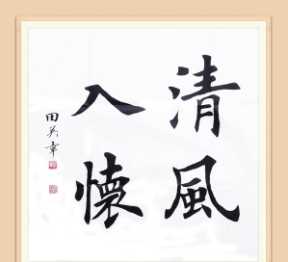 清風
入懷
田英章